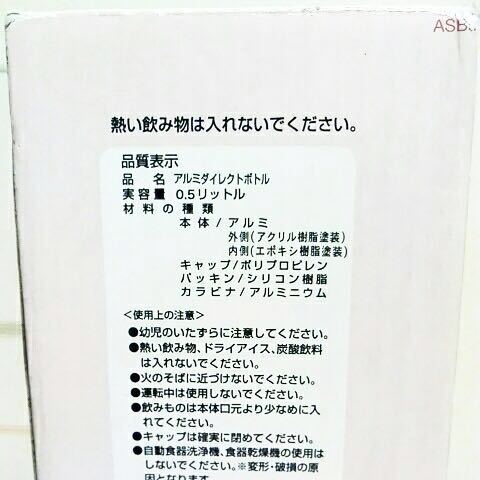 ASB
熱い飲み物は入れないでください。
品質表示
品 名 アルミダイレクトボトル
実容量 0.5リットル
材料の種類
本体/アルミ
外側(アクリル樹脂塗装)
内側(エポキシ樹脂塗装)
キャップ/ポリプロピレン
パッキン/シリコン樹脂
カラビナ/アルミニウム
<使用上の注意>
●幼児のいたずらに注意してください。
●熱い飲み物、ドライアイス、炭酸飲料
は入れないでください。
●火のそばに近づけないでください。
●運転中は使用しないでください。
●飲みものは本体口元より少なめに入
れてください。
●キャップは確実に閉めてください。
●自動食器洗浄機、食器乾燥機の使用は
しないでください。※変形・破損の原
因となります。